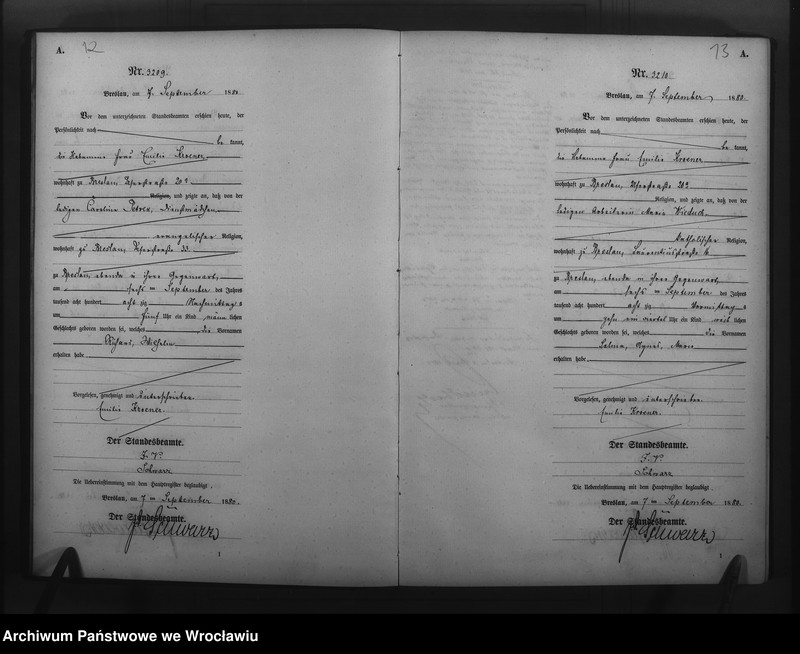 A. 12
Nr. 3209.
Breslau, am 7. September 1880.
Vor dem unterzeichneten Standesbeamten erschien heute, der
Persönlichkeit nach
be kannt,
die Hebamme Frau Emilie Kroener,
wohnhaft zu Breslau, 20a
Religion, und zeigte an, daß von der
ledigen Caroline Dienstmädchen,
evangelischer Religion,
wohnhaft zu Breslau, 33.
zu Breslau, ebenda in ihrer Gegenwart,
am sechs ten September des Jahres
tausend acht hundert acht zig Nachmittag s
um fünf Uhr ein Kind männ lichen
Geschlechts geboren worden sei, welches die Vornamen
Richard, Wilhelm
erhalten habe
Vorgelesen, genehmigt und unterschrieben
Emilie Kroener.
Der Standesbeamte.
J. V.
Schwarz
Die Uebereinstimmung mit dem Hauptregister beglaubigt
Breslau, am 7 ten September 1880.
Der Standesbeamte.
Schwarz
1
13 A.
Nr. 3210
Breslau, am 7. September 1880.
Vor dem unterzeichneten Standesbeamten erschien heute, der
Persönlichkeit nach
be kannt,
die Hebamme Frau Emilie Kroener
wohnhaft zu Breslau, 20a
Religion, und zeigte an, daß von der
ledigen Arbeiterin Maria
katholischer Religion,
wohnhaft zu Breslau, 6
zu Breslau, ebenda in ihrer Gegenwart,
am sechs ten September des Jahres
tausend acht hundert acht zig Vormittag s
um zehn ein viertel Uhr ein Kind weib lichen
Geschlechts geboren worden sei, welches die Vornamen
Selma, Agnes, Marie
erhalten habe
Vorgelesen, genehmigt und unterschrieben
Emilie Kroener.
Der Standesbeamte.
J. V.
Schwarz
Die Uebereinstimmung mit dem Hauptregister beglaubigt
Breslau, am 7 ten September 1880.
Der Standesbeamte.
Schwarz
1
Archiwum Państwowe we Wrocławiu